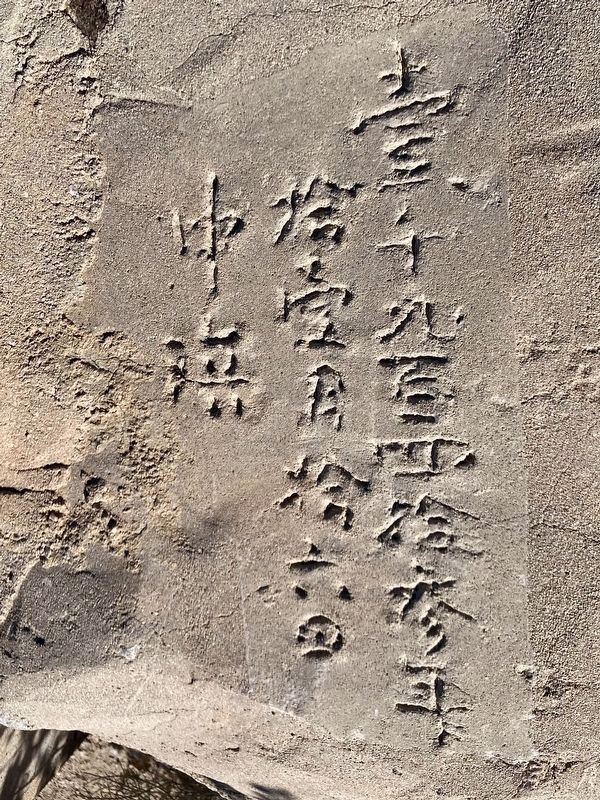 壹千九百四拾参年
拾壹月拾六日
中